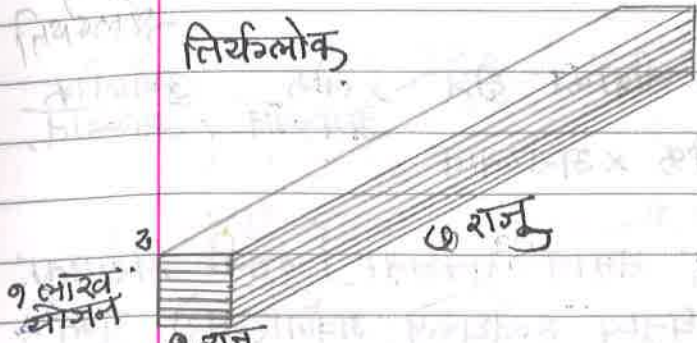 तिर्यग्लोक
७ राजू
१ लाख
योजन
१ राजू